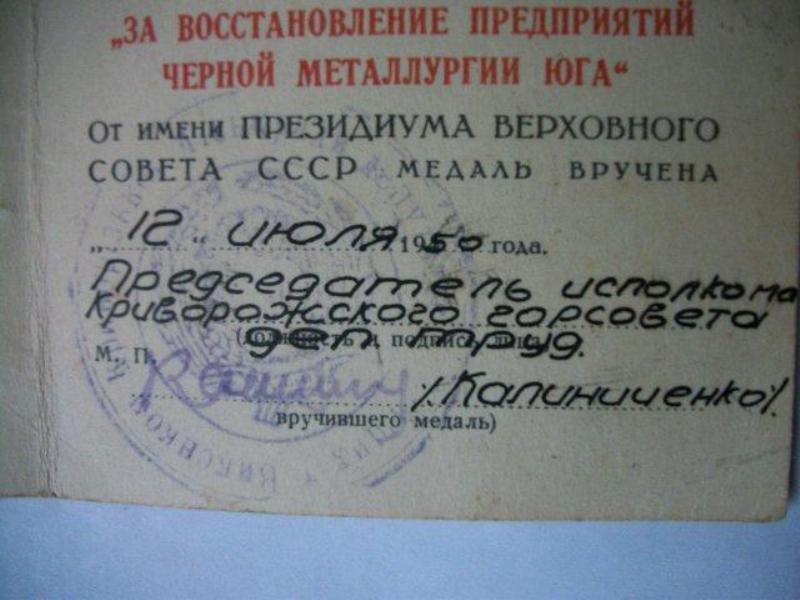 „ЗА ВОССТАНОВЛЕНИЕ ПРЕДПРИЯТИЙ
ЧЕРНОЙ МЕТАЛЛУРГИИ ЮГА“
От имени ПРЕЗИДИУМА ВЕРХОВНОГО
СОВЕТА СССР МЕДАЛЬ ВРУЧЕНА
„12“ июля 1950 года.
Председатель исполкома
Криворожского горсовета
(должность и подпись лица,
деп труд.
М. П.
/Калиниченко/.
вручившего медаль)